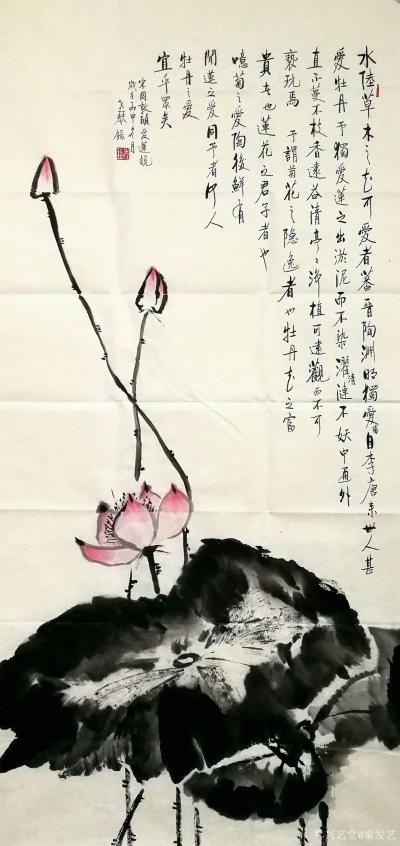 水陸草木之花可愛者蕃晉陶淵明獨愛菊自李唐来世人甚
愛牡丹予獨愛蓮之出淤泥而不染濯清漣不妖中通外
直不蔓不枝香遠益清亭亭淨植可遠觀而不可
褻玩焉予謂菊花之隐逸者也牡丹花之富
貴者也蓮花之君子者也
噫菊之愛陶後鮮有
聞蓮之愛同予者何人
牡丹之愛
宜乎眾矣
宋周敦頤愛蓮說
歲在丙申年月
兴艺堂@秦发艺